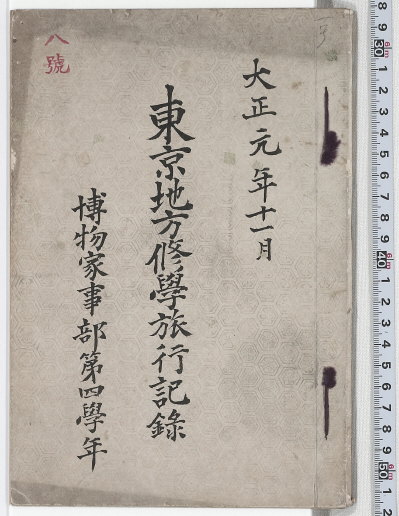 大正元年十一月
東京地方修學旅行記錄
博物家事部第四學年
八號
8
9
30
1
2
3
4
5
6
7
8
9
40
1
2
3
4
5
6
7
8
9
50
1
2